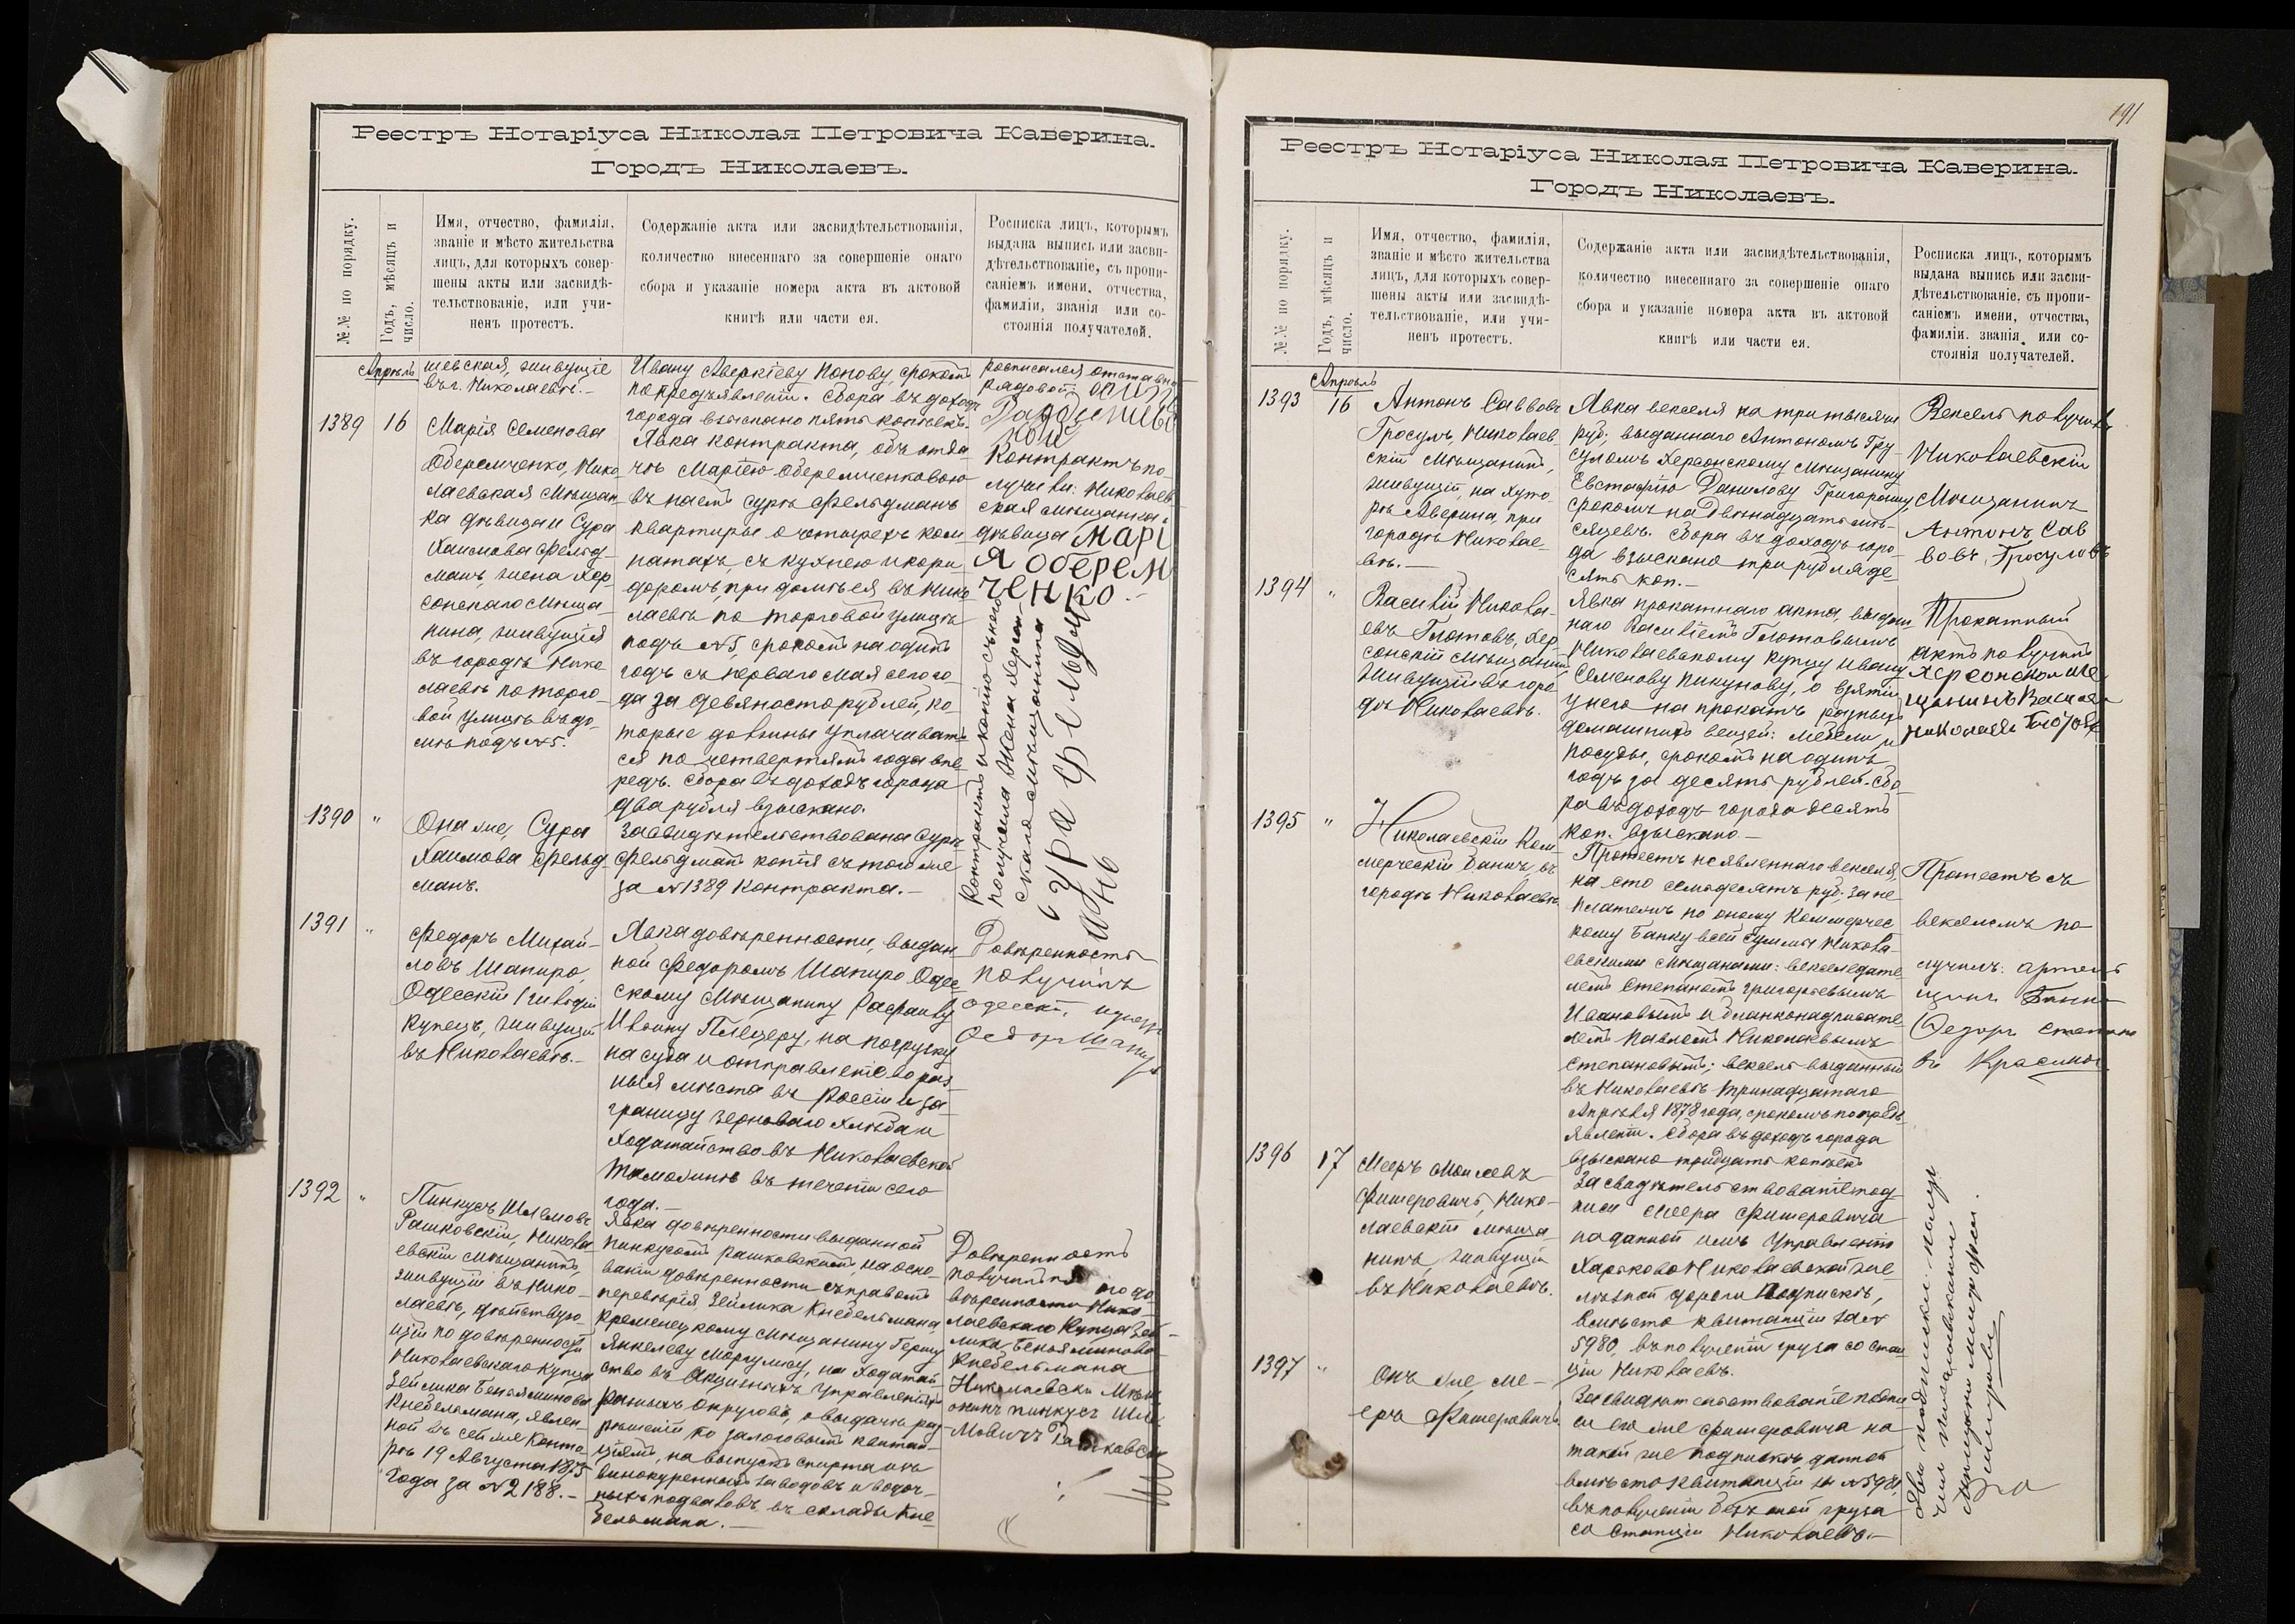 Реестръ Нотаріуса Николая Петровича Каверина.
Городъ Николаевъ.
№№ по порядку.
Годъ, мѣсяцъ и
число.
Имя, отчество, фамилія,
званіе и мѣсто жительства
лицъ, для которыхъ совер-
шены акты или засвидѣ-
тельствованіе, или учи-
ненъ протестъ.
Содержаніе акта или засвидѣтельствованія,
количество внесеннаго за совершеніе онаго
сбора и указаніе номера акта въ актовой
книгѣ или части ея.
Росписка лицъ, которымъ
выдана выпись или засви-
дѣтельствованіе, съ пропи-
саніемъ имени, отчества,
фамиліи, званія или со-
стоянія получателей.
Апрѣль
шевская, живущіе
въ г. Николаевѣ.-
Ивану Аверкіеву Попову, срокомъ
по предъявленіи. Сбора въ доходъ
города взыскано пять копѣекъ.
росписался отставной
рядовой:
1389
16
Марія Семенова
Оберемченко, Нико-
лаевская мѣщан-
ка дѣвица и Сура
Хаимова Фельд-
манъ, жена Хер-
сонскаго мѣща-
нина, живущія
въ городѣ Нико-
лаевѣ по торго-
вой улицѣ въ до-
мѣ подъ №5.
Явка контракта, объ отда-
чѣ Маріею Оберемченковою
въ наемъ Сурѣ Фельдманъ
квартиры о четырехъ ком-
натахъ съ кухнею и кори-
доромъ, при домѣ ея въ Нико-
лаевѣ по торговой улицѣ
подъ №5, срокомъ на одинъ
годъ съ перваго мая сего го-
да за девяносто рублей, ко-
торые должны уплачивать-
ся по четвертямъ года впе-
редъ. Сбора въ доходъ города
два рубля взыскано.
Контрактъ по-
лучила: Николаев-
ская мѣщанка
дѣвица Марі
я Оберем
ченко.-
Контрактъ и копію съ него
получила жена Херсон-
скаго мѣщанина
Сура Фельдма
нъ
1390
"
Она же, Сура
Хаимова Фельд-
манъ.
Засвидѣтельствована Сурѣ
Фельдманъ копія съ того же
за №1389 контракта.-
1391
"
Федоръ Михай-
ловъ Шапиро,
Одесскій 1 гильдіи
купецъ, живущій
въ Николаевѣ.-
Явка довѣренности, выдан-
ной Федоромъ Шапиро Одес-
скому мѣщанину Рафаилу
Ивоину Плецеру, на погрузку
на суда и отправленіе во раз-
ныя мѣста въ Россіи и за-
границу зерноваго хлѣба и
ходатайство въ Николаевской
таможнѣ въ теченіи сего
года.-
Довѣренность
получилъ
одесскі.
Федор Шапир
1392
"
Пинкусъ Шлемовъ
Рашковскій, Никола-
евскій мѣщанинъ,
живущій въ Нико-
лаевѣ, дѣйствую-
щій по довѣренности
Николаевскаго купца
Зейлика Беньяминова
Кнебельмана, явлен-
ной въ сей же Конто-
рѣ 19 Августа 1875
года за №2188.-
Явка довѣренности выданной
Пинкусомъ Рашковскимъ, на осно-
ваніи довѣренности съ правомъ
перевѣрія, Зейлика Кнебельмана,
Кременецкому мѣщанину Гершу
Янкелеву Моргулису, на ходатай-
ство въ Акцизныхъ Управленіяхъ
разныхъ округовъ, о выдачѣ раз-
рѣшеній по залоговымъ квитан-
ціямъ, на выпускъ спирта изъ
винокуренныхъ заводовъ и водоч-
ныхъ подваловъ въ склады Кне-
бельмана.-
Довѣренность
получилъ по до-
вѣренности Нико-
лаевскаго Купца Зей-
лика Беньяминова
Кнебельмана
Николаевски Мѣщ
анинъ Пинкусъ Шле-
мовичъ Рашковски
191
Реестръ Нотаріуса Николая Петровича Каверина.
Городъ Николаевъ.
№№ по порядку.
Годъ, мѣсяцъ и
число.
Имя, отчество, фамилія,
званіе и мѣсто жительства
лицъ, для которыхъ совер-
шены акты или засвидѣ-
тельствованіе, или учи-
ненъ протестъ.
Содержаніе акта или засвидѣтельствованія,
количество внесеннаго за совершеніе онаго
сбора и указаніе номера акта въ актовой
книгѣ или части ея.
Росписка лицъ, которымъ
выдана выпись или засви-
дѣтельствованіе, съ пропи-
саніемъ имени, отчества,
фамиліи, званія, или со-
стоянія получателей.
Апрѣль
1393
16
Антонъ Саввовъ
Гросулъ, Николаев-
скій мѣщанинъ,
живущій, на хуто-
рѣ Аверина, при
городѣ Николае-
вѣ.-
Явка векселя на три тысячи
руб., выданнаго Антономъ Гру-
суломъ Херсонскому мѣщанину
Евстафію Данилову Григорашу,
срокомъ на двѣнадцать мѣ-
сяцевъ. Сбора въ доходъ горо-
да взыскано три рубля де-
сять коп.-
Вексель получилъ
Николаевскій
Мѣщанинъ
Антонъ Сав
вовъ Гросуловъ
1394
"
Василій Никола-
евъ Глотовъ, Хер-
сонскій мѣщанинъ
живущій въ горо-
дѣ Николаевѣ.
Явка прокатнаго акта, выдан-
наго Василіемъ Глотовымъ
Николаевскому купцу Ивану
Семенову Пикунову, о взятіи
у него на прокатъ разныхъ
домашнихъ вещей: мебели и
посуды, срокомъ на одинъ
годъ за десять рублей. Сбо-
ра въ доходъ города десять
коп. взыскано.-
Прокатный
актъ получилъ
Херсонскои ме
щанинъ Васила
Николаевъ Глотовъ
1395
"
Николаевскій Ком-
мерческій Банкъ, въ
городѣ Николаевѣ.
Протестъ неявленнаго векселя,
на сто семьдесятъ руб. за не-
платежъ по оному Коммерчес-
кому Банку всей суммы Никола-
евскими мѣщанами: векселедате-
лемъ Степаномъ Григорьевымъ
Ивановымъ и бланконадписате-
лемъ Павломъ Николаевымъ
Степановымъ; вексель выданный
въ Николаевѣ тринадцатаго
Апрѣля 1878 года, срокомъ по предъ-
явленіи. Сбора въ доходъ города
взыскано тридцать копѣекъ
Протестъ съ
векселемъ по
лучилъ: артель
щикъ Банка
Федоръ Степано
въ
1396
17
Мееръ Моисеевъ
Фишеровичъ, Нико-
лаевскій мѣща-
нинъ, живущій
въ Николаевѣ.
Засвидѣтельствованіе под-
писи Меера Фишеровича
на данной имъ Управленію
Харьково Николаевской же-
лѣзной дороги подпискѣ,
вмѣсто квитанціи за №
5980, въ полученіи груза со стан-
ціи Николаевъ.
1397
"
Онъ же, Ме-
еръ Фишеровичъ
Засвидѣтельствованіе подпи-
си его же Фишеровича на
такой же подпискѣ данной
вмѣсто квитанціи за №5981,
въ полученіи безъ оной груза
со станціи Николаевъ.-
Двѣ подписки. получ
чил николаевскиии